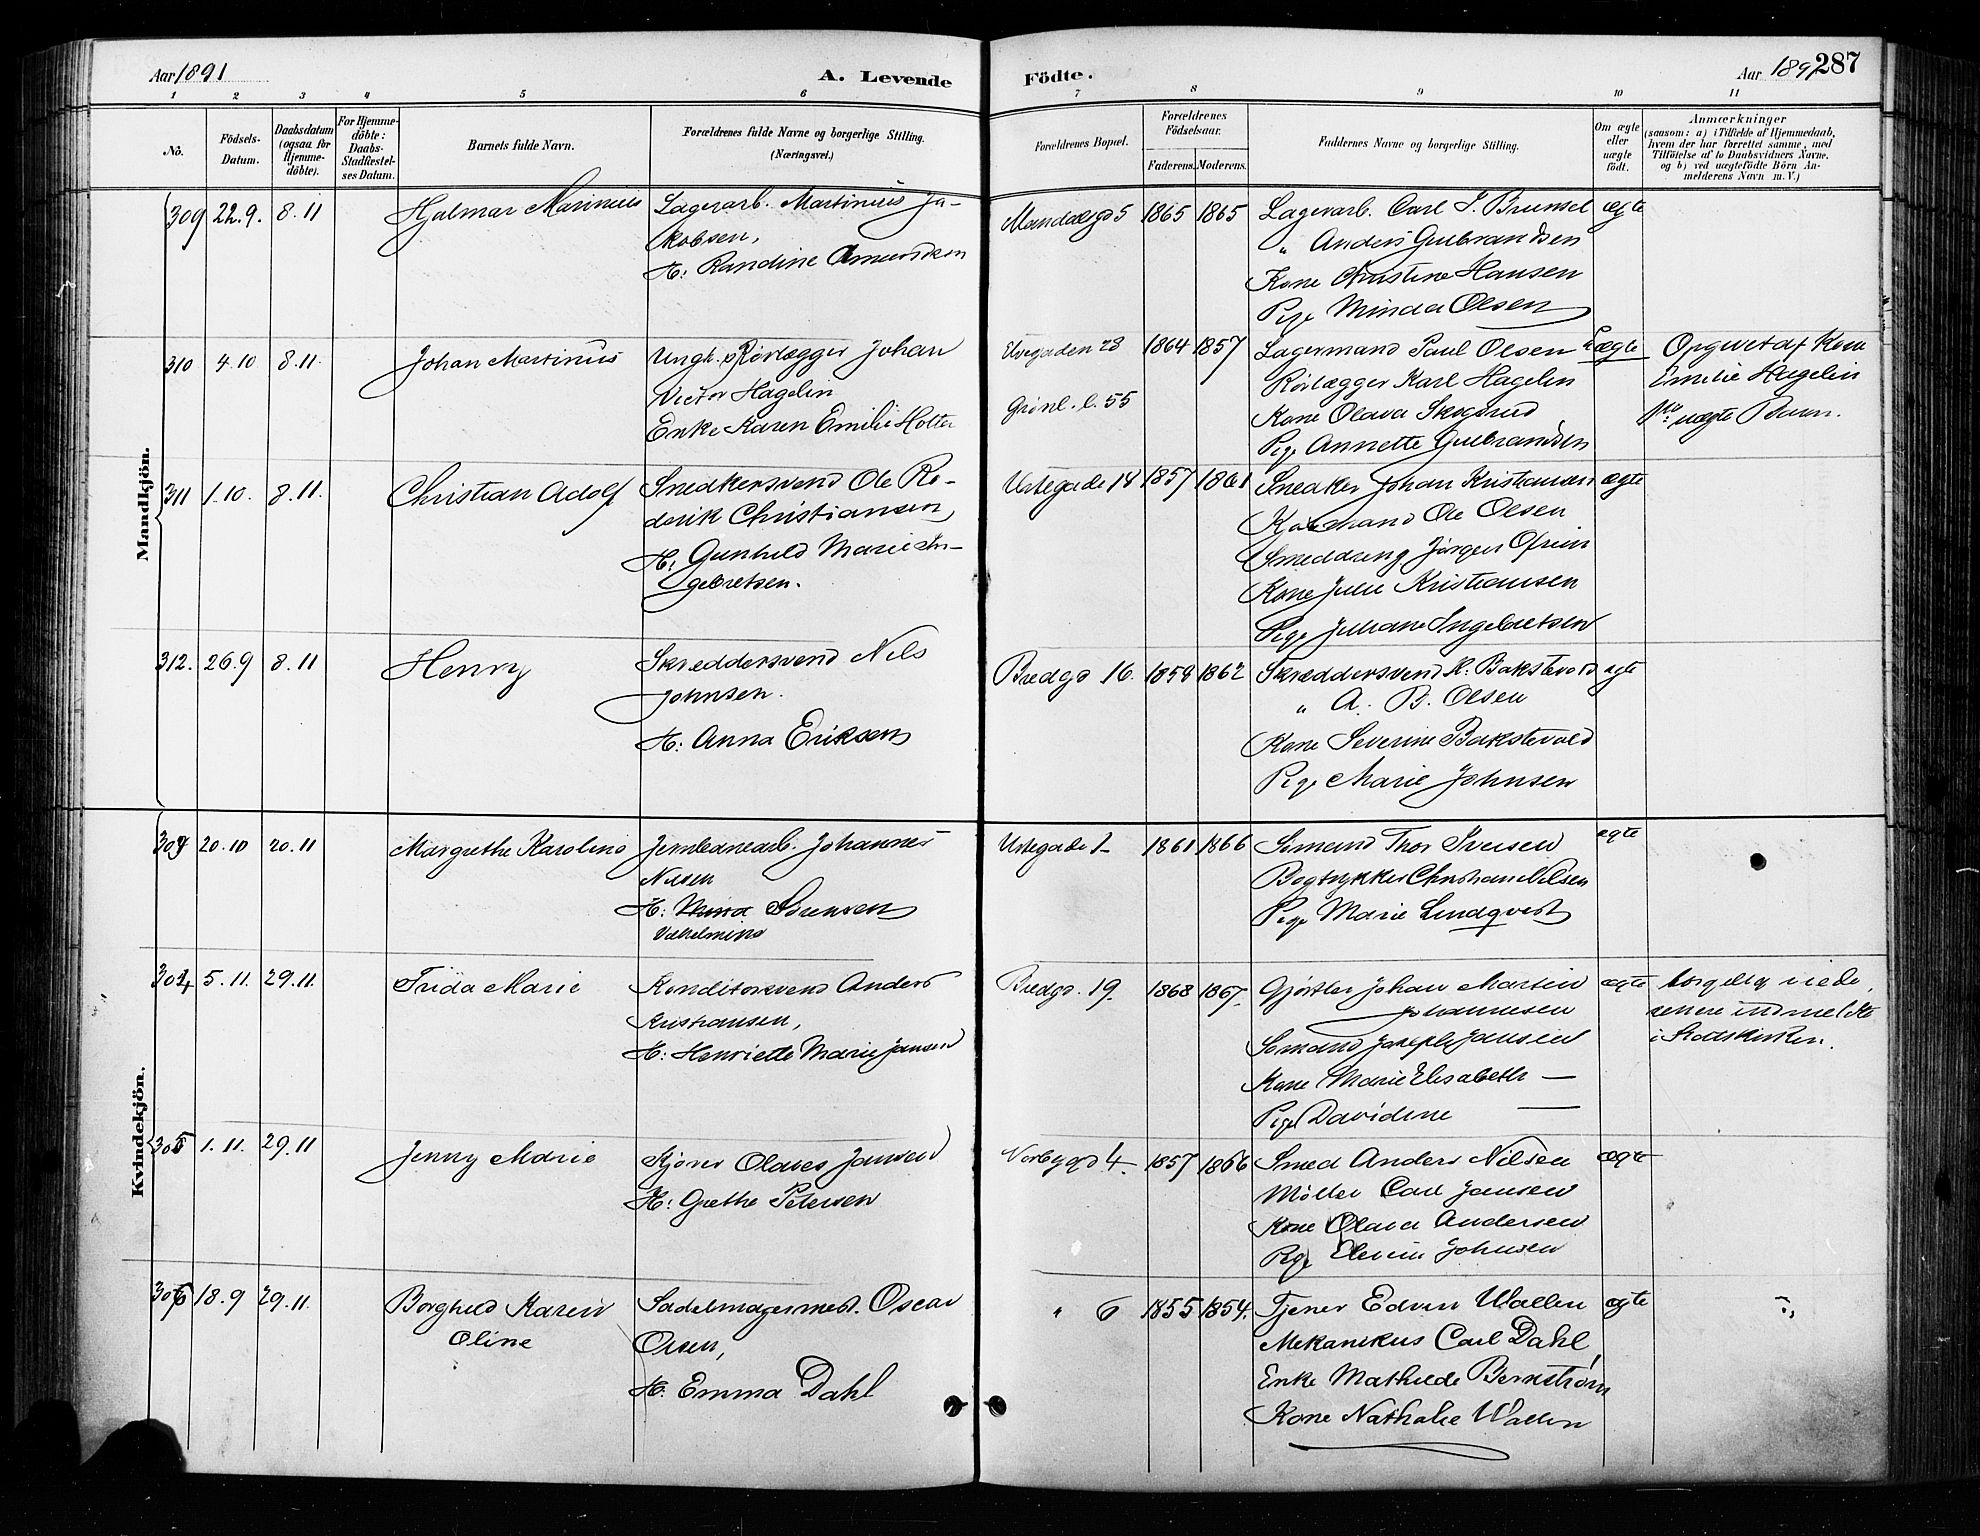 Aar 1891
A. Levende
Födte.
Aar 1891
287
1 2 3 4 5 6 7 8 9 10 11
No.
Födsels-
Datum.
Daabsdatum
(ogsaa for
Hjemme-
döbte).
For Hjemme-
döbte:
Daabs-
Stadfæstel-
ses Datum.
Barnets fulde Navn.
Forældrenes fulde Navne og borgerlige Stilling.
(Næringsvei.)
Forældrenes Bopæl.
Forældrenes
Födselsaar.
Faderens. Moderens.
Faddernes Navne og borgerlige Stilling.
Om ægte
eller
uægte
født.
Anmærkninger
(saasom: a) i Tilfælde af Hjemmedaab,
hvem der har forrettet samme, med
Tilföielse af to Daabsvidners Navne,
og b) ved uægtefödte Börn An-
melderens Navn m. V.)
Mandkjön.
309 22.9. 8.11 Hjalmar Marinius
Lagerarb. Martinius Ja-
kobsen,
H: Randine Amundsen
Mandalsgd 5 1865 1865
Lagerarb. Carl J. Brunsel
" Anders Gulbrandsen
Kone Christine Hansen
Pige Minda Olsen
ægte
310 4.10 8.11. Johan Martinius
Ungk. Rörlægger Johan
Victor Hagelin
Enke Karen Emilie Holter
Elvegaden 28
Grönl. l. 55
1864 1857
Lagermand Paul Olsen
Rörlægger Karl Hagelin
Kone Olava Skogsrud
Pige Annette Gulbrandsen
uægte
Opgivet af Kone
Emilie Hagelin
uægte Barn.
311 1.10. 8.11. Christian Adolf
Snedkersvend Ole Ro-
derik Christiansen,
H: Gunhild Marie In-
gebretsen.
Urtegade 14 1857 1861
Snedker Johan Kristiansen
Kjøbmand Ole Olsen
Smeddreng Jörgen
Kone Julie Kristiansen
Pige Juliane Ingebretsen
ægte
312. 26.9 8.11 Henry
Skræddersvend Nils
Johnsen.
H: Anna Eriksen
Bredgd 16. 1859 1862
Skræddersvend K. Bakstevold
" A. B. Olsen
Kone Severine Bakstevold
Pige Marie Johnsen
ægte
Kvindekjön.
303 20.10 20.11 Margrethe Karoline
Jernbanearb. Johannes
Nilsen
H: Mina Sörensen
Vilhelmine
Urtegade 1 1861 1866
Sömand Thor Iversen
Bogtrykker Christian Nilsen
Pige Marie Lindqvist
ægte
304 5.11. 29.11 Frida Marie
Konditorsvend Anders
Kristiansen,
H: Henriette Marie Jansen
Bredgd. 19. 1868 1867.
Gjörtler Johan Martin
Johannesen
Sömand Joseph Jansen
Kone Marie Elisabeth —
Pige Davidine —
ægte
borgelig viede,
senere indmeldte
i Statskirken.
305 1.11. 29.11 Jenny Marie
Kjörer Olaves Jansen
H: Grethe Petersen
Norbygd 4. 1857 1866
Smed Anders Nilsen
Möller Carl Jansen
Kone Olava Andersen
Pige Johnsen
ægte
306 18.9 29.11. Borghild Karen
Oline
Sadelmagermest. Oscar
Olsen,
H. Emma Dahl
" 6 1855 1854.
Tjener Edvin Wallen
Mekanikus Carl Dahl,
Enke Mathilde Bernström
Kone Nathalie Wallen
ægte